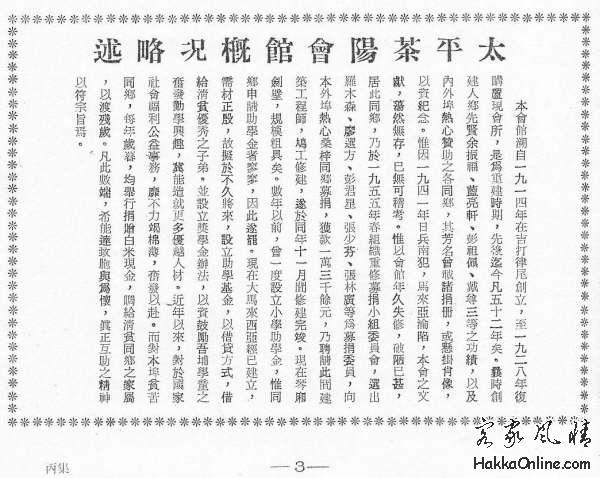 太平茶陽會館概況略述
本會館溯自一九一四年在吉打律尾創立，至一九二八年復
購置現會所，是爲重建時期，先後迄今凡五十二年矣。曩時創
建人鄉先賢余振福、藍亮軒、彭祖佩、戴尊三等之功績，以及
內外埠熱心贊助之各同鄉，其芳名曾載諸捐册，或懸掛肖像，
以資紀念。惟因一九四一年日兵南犯，馬來亞淪陷，本會之文
獻，蕩然無存，已無可稽考。惟以會館年久失修，破陋已甚，
居此同鄉，乃於一九五五年春組織重修募捐小組委員會，選出
羅木森、廖選方、彭君星、張少芬、張林廣等爲募捐委員，向
本外埠熱心桑梓同鄉募捐，獲欵一萬三千餘元，乃聘請此間建
築工程師，鳩工修建，遂於同年十一月間修建完竣。現在琴廂
劍壁，規模粗具矣。數年以前，曾一度設立小學助學金，惟同
鄉申請助學金者寥寥，因此遂罷。現在大馬來西亞經已建立，
需材正殷，故擬於不久將來，設立助學基金，以借貸方式，借
給清貧優秀之子弟。並設立獎學金辦法，以資鼓勵吾埔學童之
奮發勤學興趣，冀能造就更多優越人材。近年以來，對於國家
社會福利公益事務，靡不力竭棉薄，奮發以赴。而對本埠貧苦
同鄉，每年歲暮，均舉行捐贈白米現金，賙給清貧同鄉之家屬
，以渡殘歲。凡此數端，希能達致胞與爲懷，眞正互助之精神
以符宗旨焉。
—3—
丙集
客家風情
HakkaOnline.com